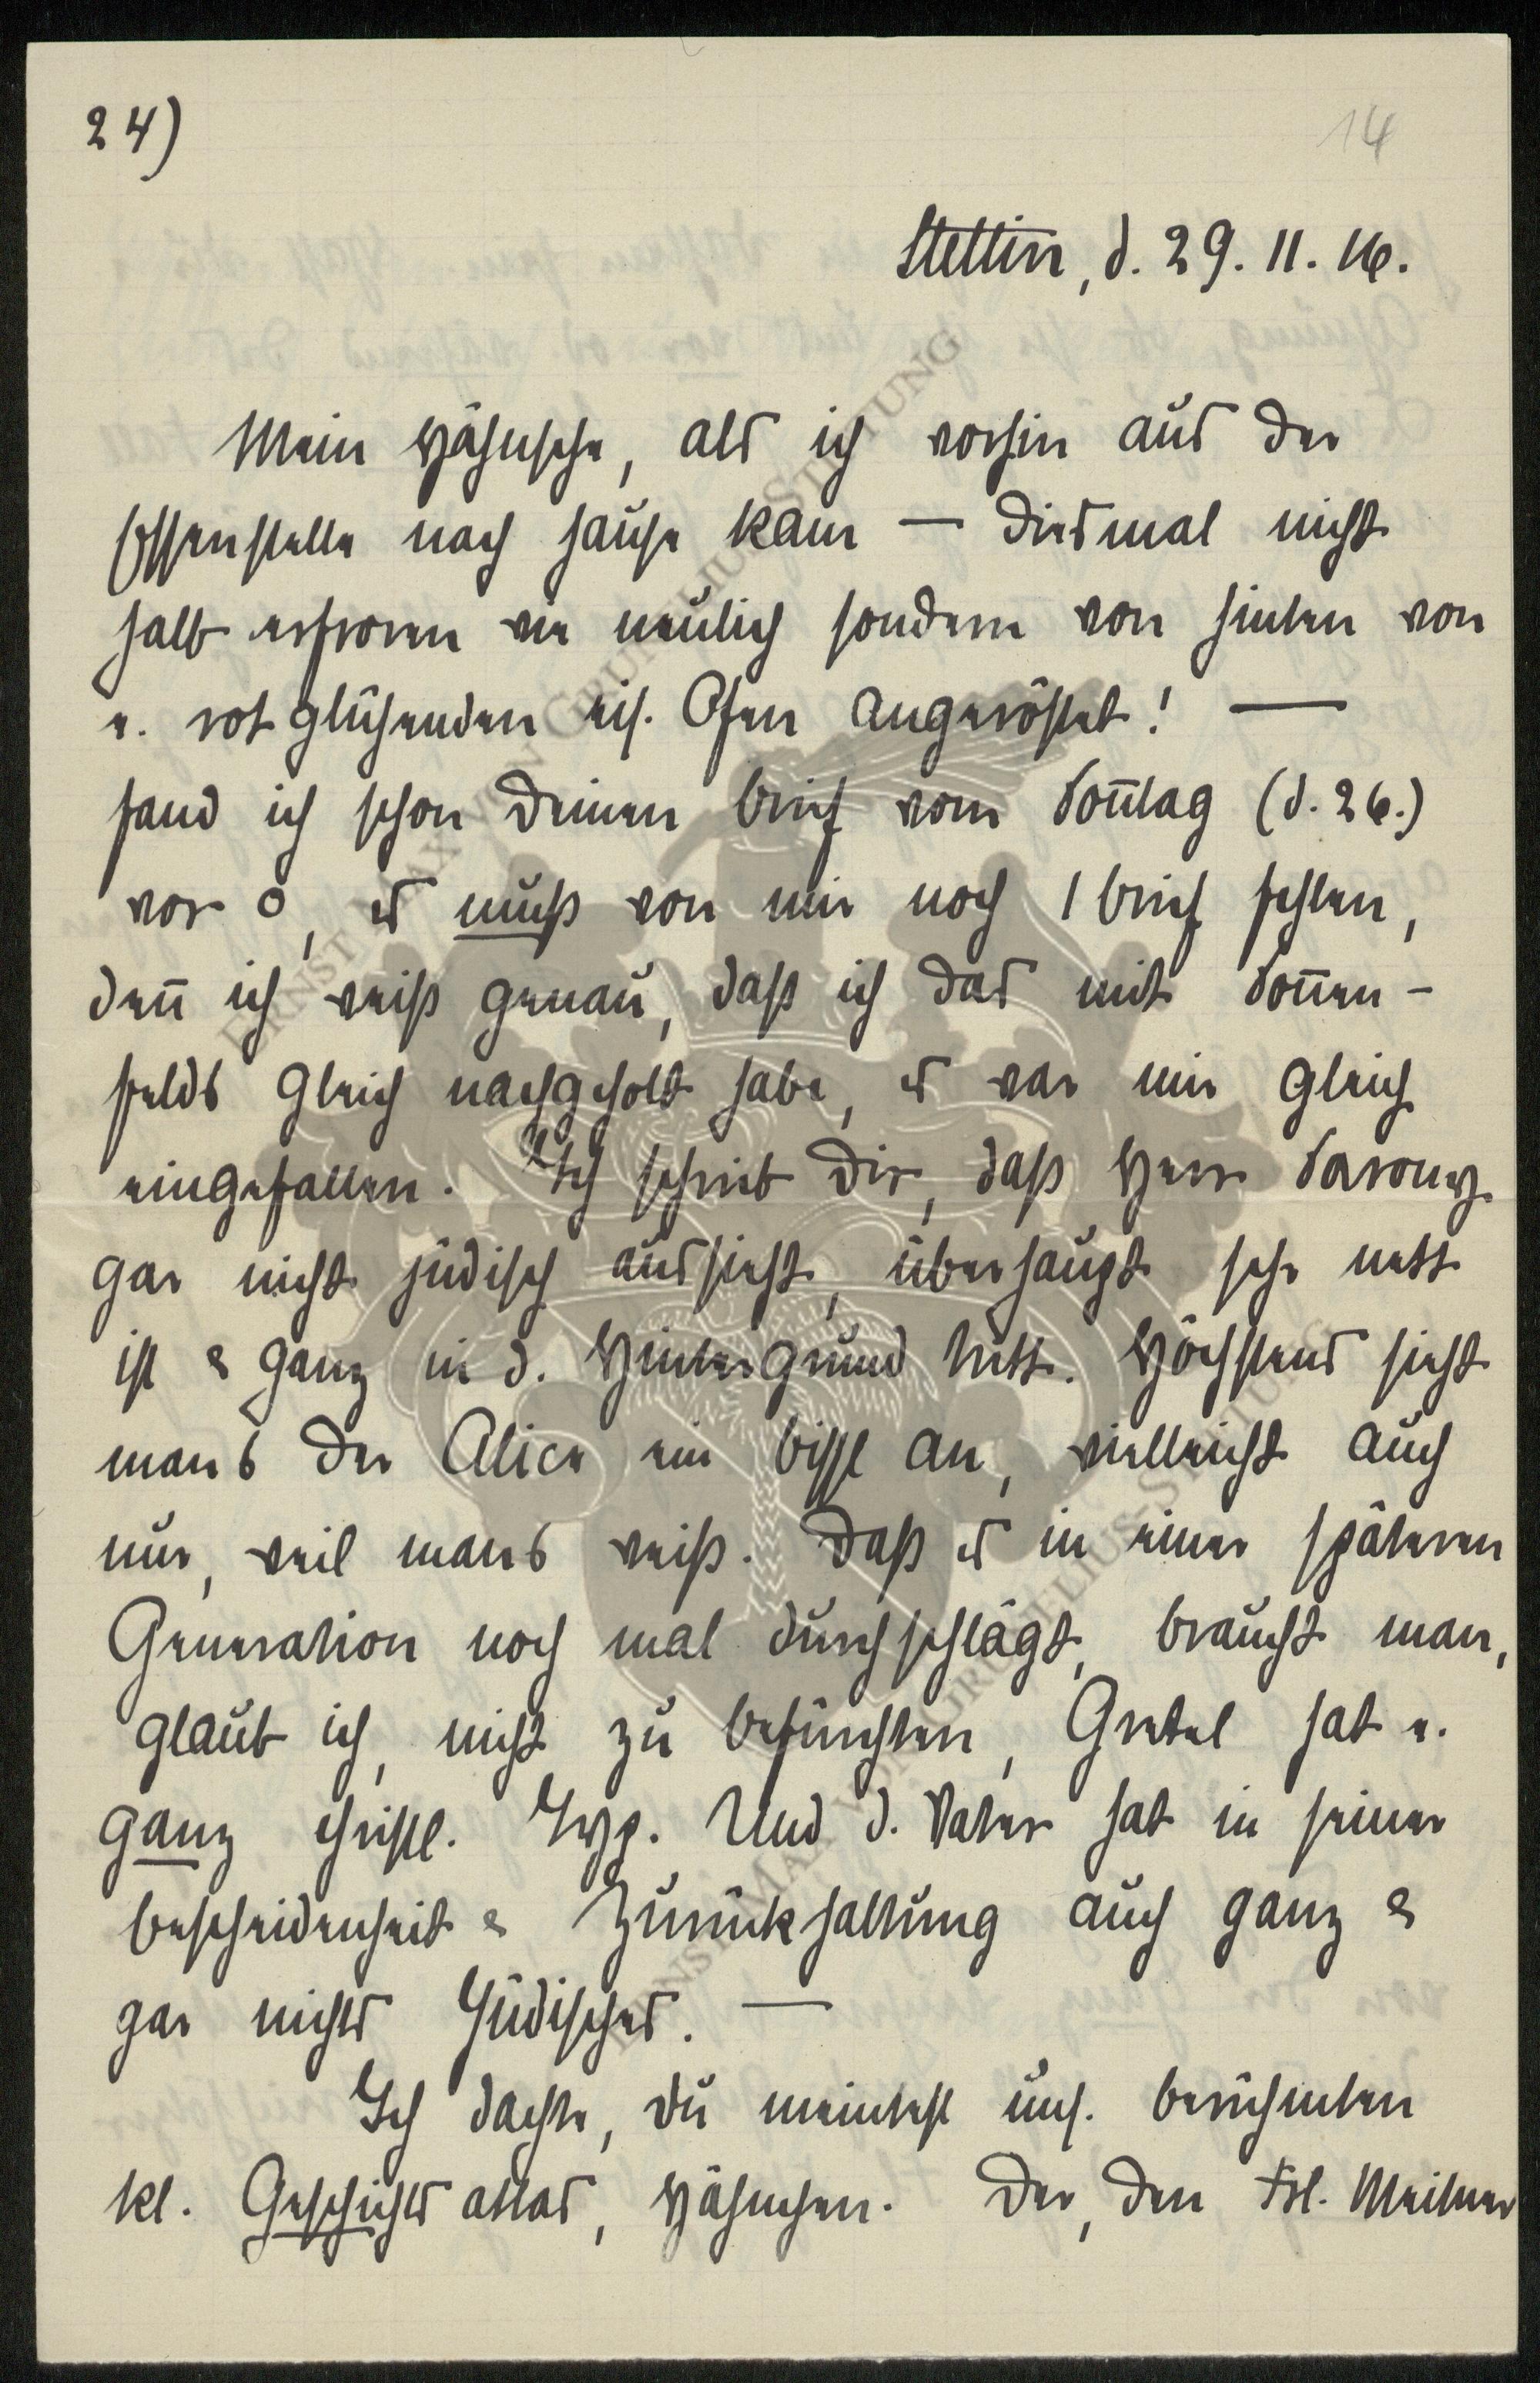 24)
14
Stettin, d. 29. 11. 16.
Mein Hähnsche, als ich vorhin aus der
Essenstelle nach hause kam — diesmal nicht
halb erfroren wie neulich sondern von hinten von
e. rot glühenden eis. Ofen angeröstet! —
fand ich schon deinen brief vom Son̅tag (d. 26.)
vor o, es muß von mir noch 1 brief fehlen,
den̅ ich weiß genau, daß ich das mit Son̅en-
felds gleich nachgeholt habe, es war mir gleich
eingefallen. Ich schrieb dir, daß Herr
gar nicht jüdisch aussieht, überhaupt sehr nett
ist & ganz in d. Hintergrund tritt. Höchstens sieht
mans der Alice ein bissl an, vielleicht auch
nur, weil mans weiß. Daß es in einer späteren
Generation noch mal durchschlägt, braucht man,
glaub ich, nicht zu befürchten, Gretel hat e.
ganz christl. Typ. Und d. Vater hat in seiner
bescheidenheit & Zurückhaltung auch ganz &
gar nichts Jüdisches. —
Ich dachte, du meintest uns. berühmten
kl. Geschichtsatlas, Hähnchen. Der, den Frl. Meitner
ERNST MAX VON GRUNELIUS STIFTUNG
ERNST MAX VON GRUNELIUS STIFTUNG